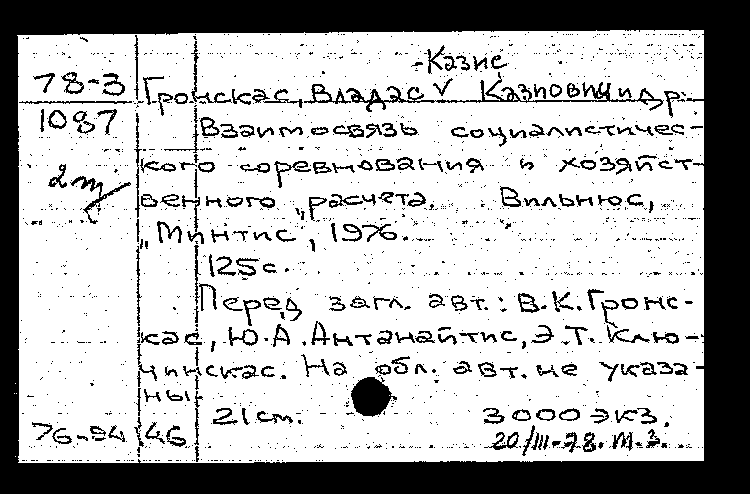 -Казис
78-3 Гронскас, Владас V Казиович и др.
1087 Взаимосвязь социалистичес-
кого соревнования и хозяйст-
2 т
венного расчета. Вильнюс,
„Минтис", 1976.
125с.
Перед загл. авт.: В.К.Гронс-
кас, Ю.А.Антанайтис, Э.Т. Клю-
чинскас. На обл. авт. не указа-
ны.
21см. 3000 экз.
76-94 46 20/III-78. т.з.